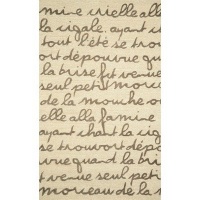 mine vielle alle
la cigale. ayant i
tout l'été se trou
ort dépourvue qua
la brise fit venue
seul petit morceau
de la mouche ou
elle alla famine
ayant chant la cig
se trouvort dépour
vue quand la brise
t venue seul peti
morceau de la m